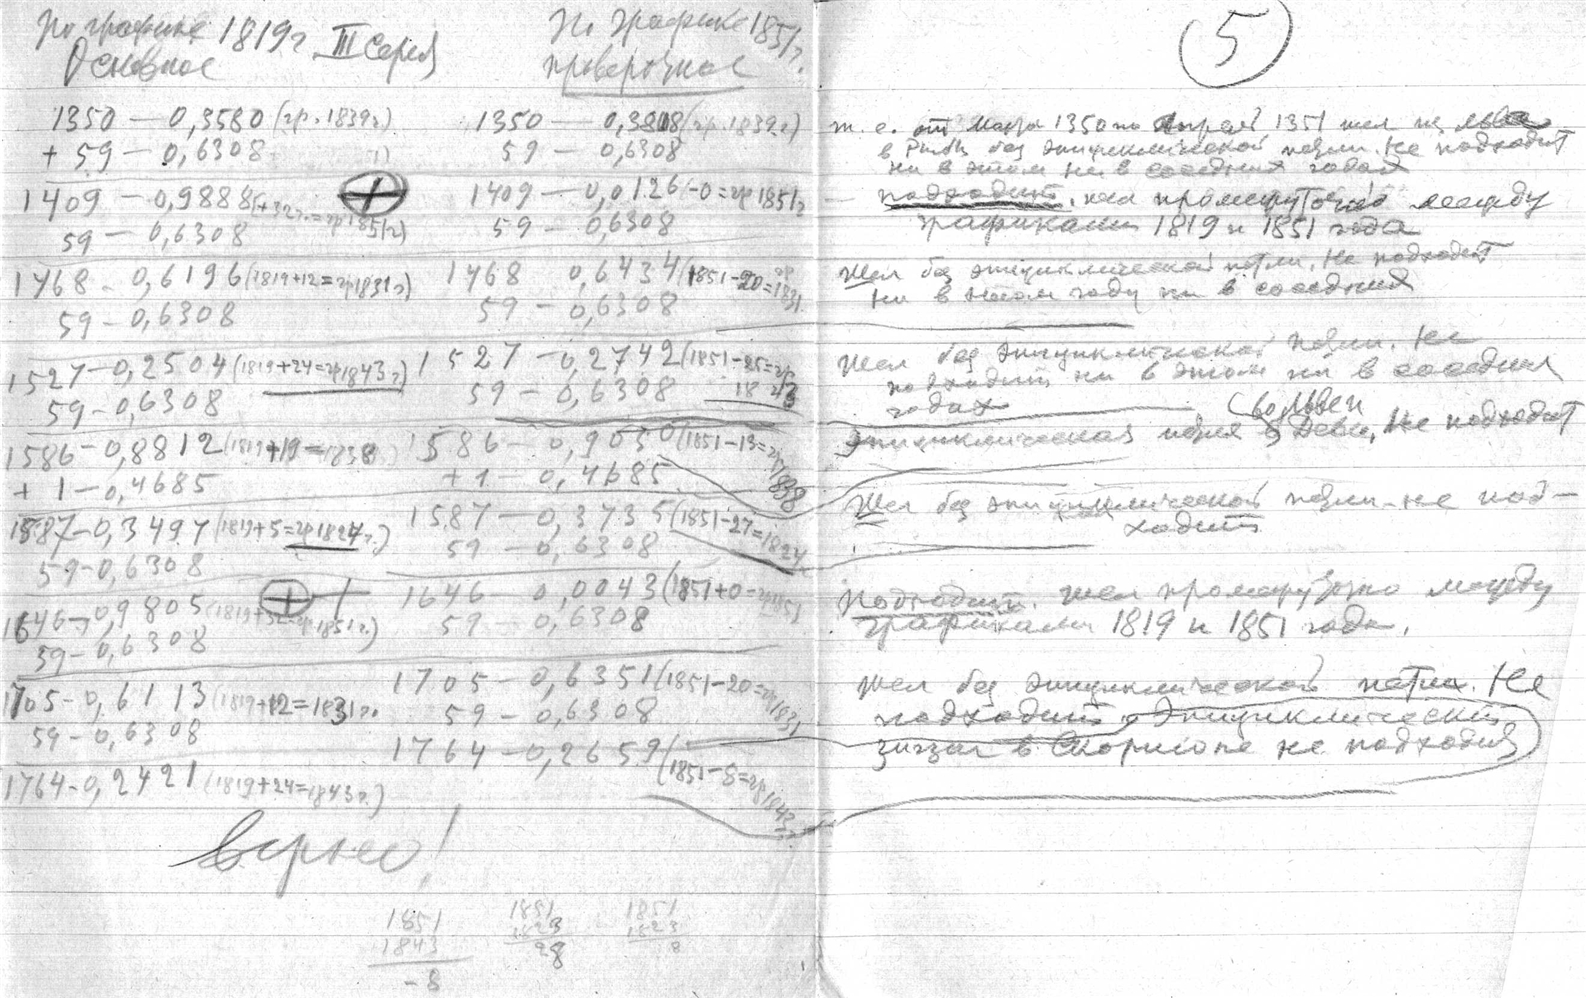 По графике 1819 г III серия
Основное
1350 — 0,3580 (гр. 1839 г)
+ 59 — 0,6308
1409 — 0,9888 (+32 г. = гр 1851 г)
59 — 0,6308
1468 - 0,6196 (1819+12 = гр 1831 г)
59 - 0,6308
1527 - 0,2504 (1819+24 = гр 1843 г.)
59 - 0,6308
1586 - 0,8812 (1819+19 = 1838)
+ 1 - 0,4685
1587 - 0,3497 (1819+5 = гр 1824 г.)
59 - 0,6308
1646 - 0,9805 (1819+32 = гр 1851 г.)
59 - 0,6308
1705 - 0,6113 (1819+12 = 1831 г.
59 - 0,6308
1764 - 0,2421 (1819+24 = 1843 г.)
верно!
По графике 1851 г.
проверочное
1350 — 0,3808 (гр. 1839 г)
59 — 0,6308
1409 — 0,0126 (-0 = гр 1851 г
59 - 0,6308
1468 0,6434 (1851-20 = гр 1831
59 - 0,6308
1527 - 0,2742 (1851-
59 - 0,6308 1843
1586 - 0,9050 (1851-13 = гр 1838
+ 1 - 0,4685
1587 - 0,3735 (1851-27 = 1824
59 - 0,6308
1646 0,0043 (1851+0 = гр 1851
59 - 0,6308
1705 - 0,6351 (1851-20 = гр 1831
59 - 0,6308
1764 - 0,2659 (1851-8 = гр 1843
1851
1843
- 8
1851
1823
28
1851
1823
8
5
т. е. от Марта 1350 по Апрель 1351 шел из Льва
в без эпициклической петли. Не подходит
ни в этом ни в соседних годах
подходит, шел промежуточно между
графиками 1819 и 1851 года
Шел без эпициклической петли. Не подходит
ни в этом году ни в соседних
Шел без эпициклической петли. Не
подходит ни в этом ни в соседних
годах
Эпициклическая петля в Деве, Не подходит
Шел без эпициклической петли - не под-
ходит
Подходит. Шел промежуточно между
графиками 1819 и 1851 года.
Шел без эпициклической петли. Не
подходит. Эпициклический
зигзаг в Скорпионе не подходит